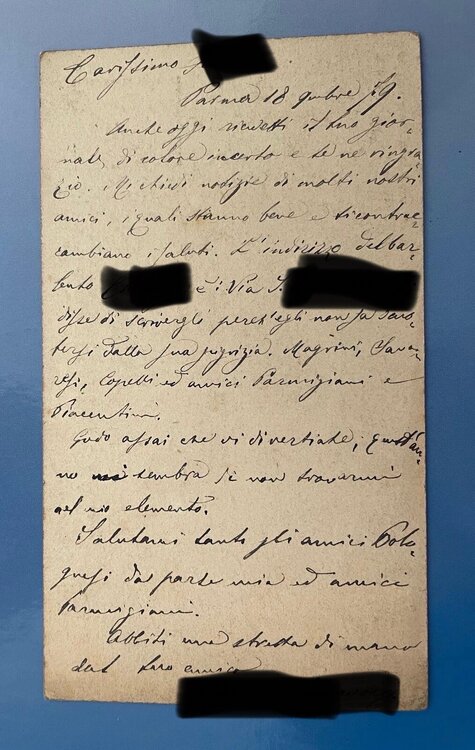 Carissimo
Parma 18 9mbre 79.
Anche oggi ricevetti il tuo gior-
nale di colore incerto e te ne ringra-
zio. Mi chiedi notizie di molti nostri
amici, i quali stanno bene e ti contrac-
cambiano i saluti. L'indirizzo del bar-
bento è: Via S.
disse di scrivergli perch'egli non sa
dalla sua pigrizia. Magrini, Sava-
resi, Copelli ed amici Parmigiani e
Piacentini.
Godo assai che vi divertiate; quest'an-
no mi sembra di non trovarmi
nel mio elemento.
Salutami tanto gli amici Bolo-
gnesi da parte mia ed amici
Parmigiani.
Abbiti una stretta di mano
dal tuo amico